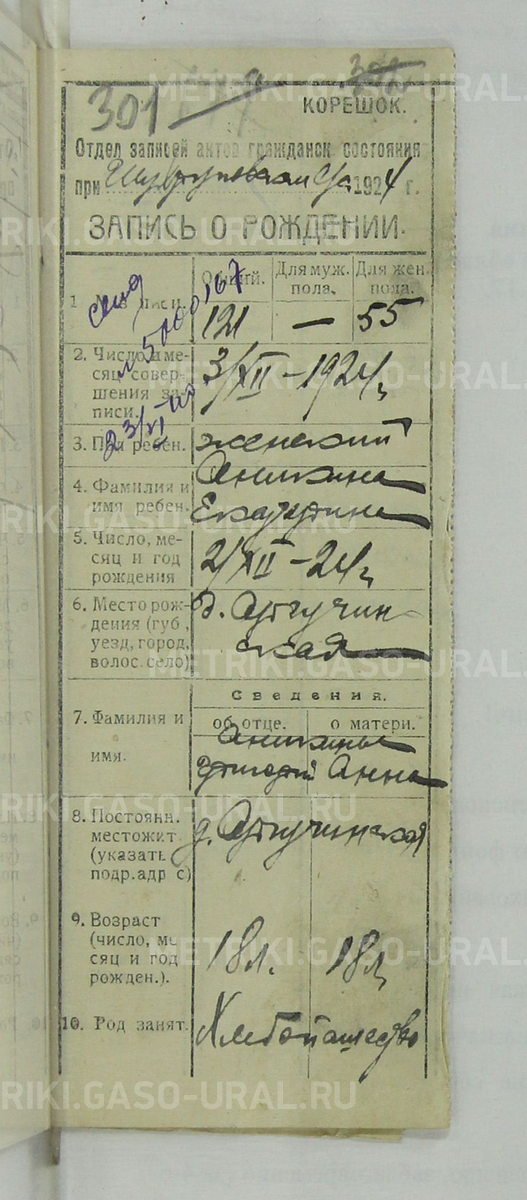 301
302
КОРЕШОК.
Отдел записей актов гражданск. состояния
при 1924 г.
ЗАПИСЬ О РОЖДЕНИИ.
1
писи.
Общий.
Для муж. пола.
Для жен. пола.
121 — 55
2. Число и ме-
сяц совер-
шения за-
писи.
3/XII – 1924 г.
3. Пол ребен.
женский
4. Фамилия и
имя ребен.
Аникина
Екатерина
5. Число, ме-
сяц и год
рождения
2/XII – 24 г.
6. Место рож-
дения (губ.,
уезд, город,
волос. село)
д. Артучин-
ская
Сведения.
7. Фамилия и
имя.
об отце.
о матери.
Аникины
Григорий Анна
8. Постоянн.
местожит.
(указать
подр. адр с)
д. Артучинская
9. Возраст
(число, ме
сяц и год
рожден.).
18 л. 18 л.
10. Род занят.
Хлебопашество
свид
№ 5000167
METRIKI.GASO-URAL.RU